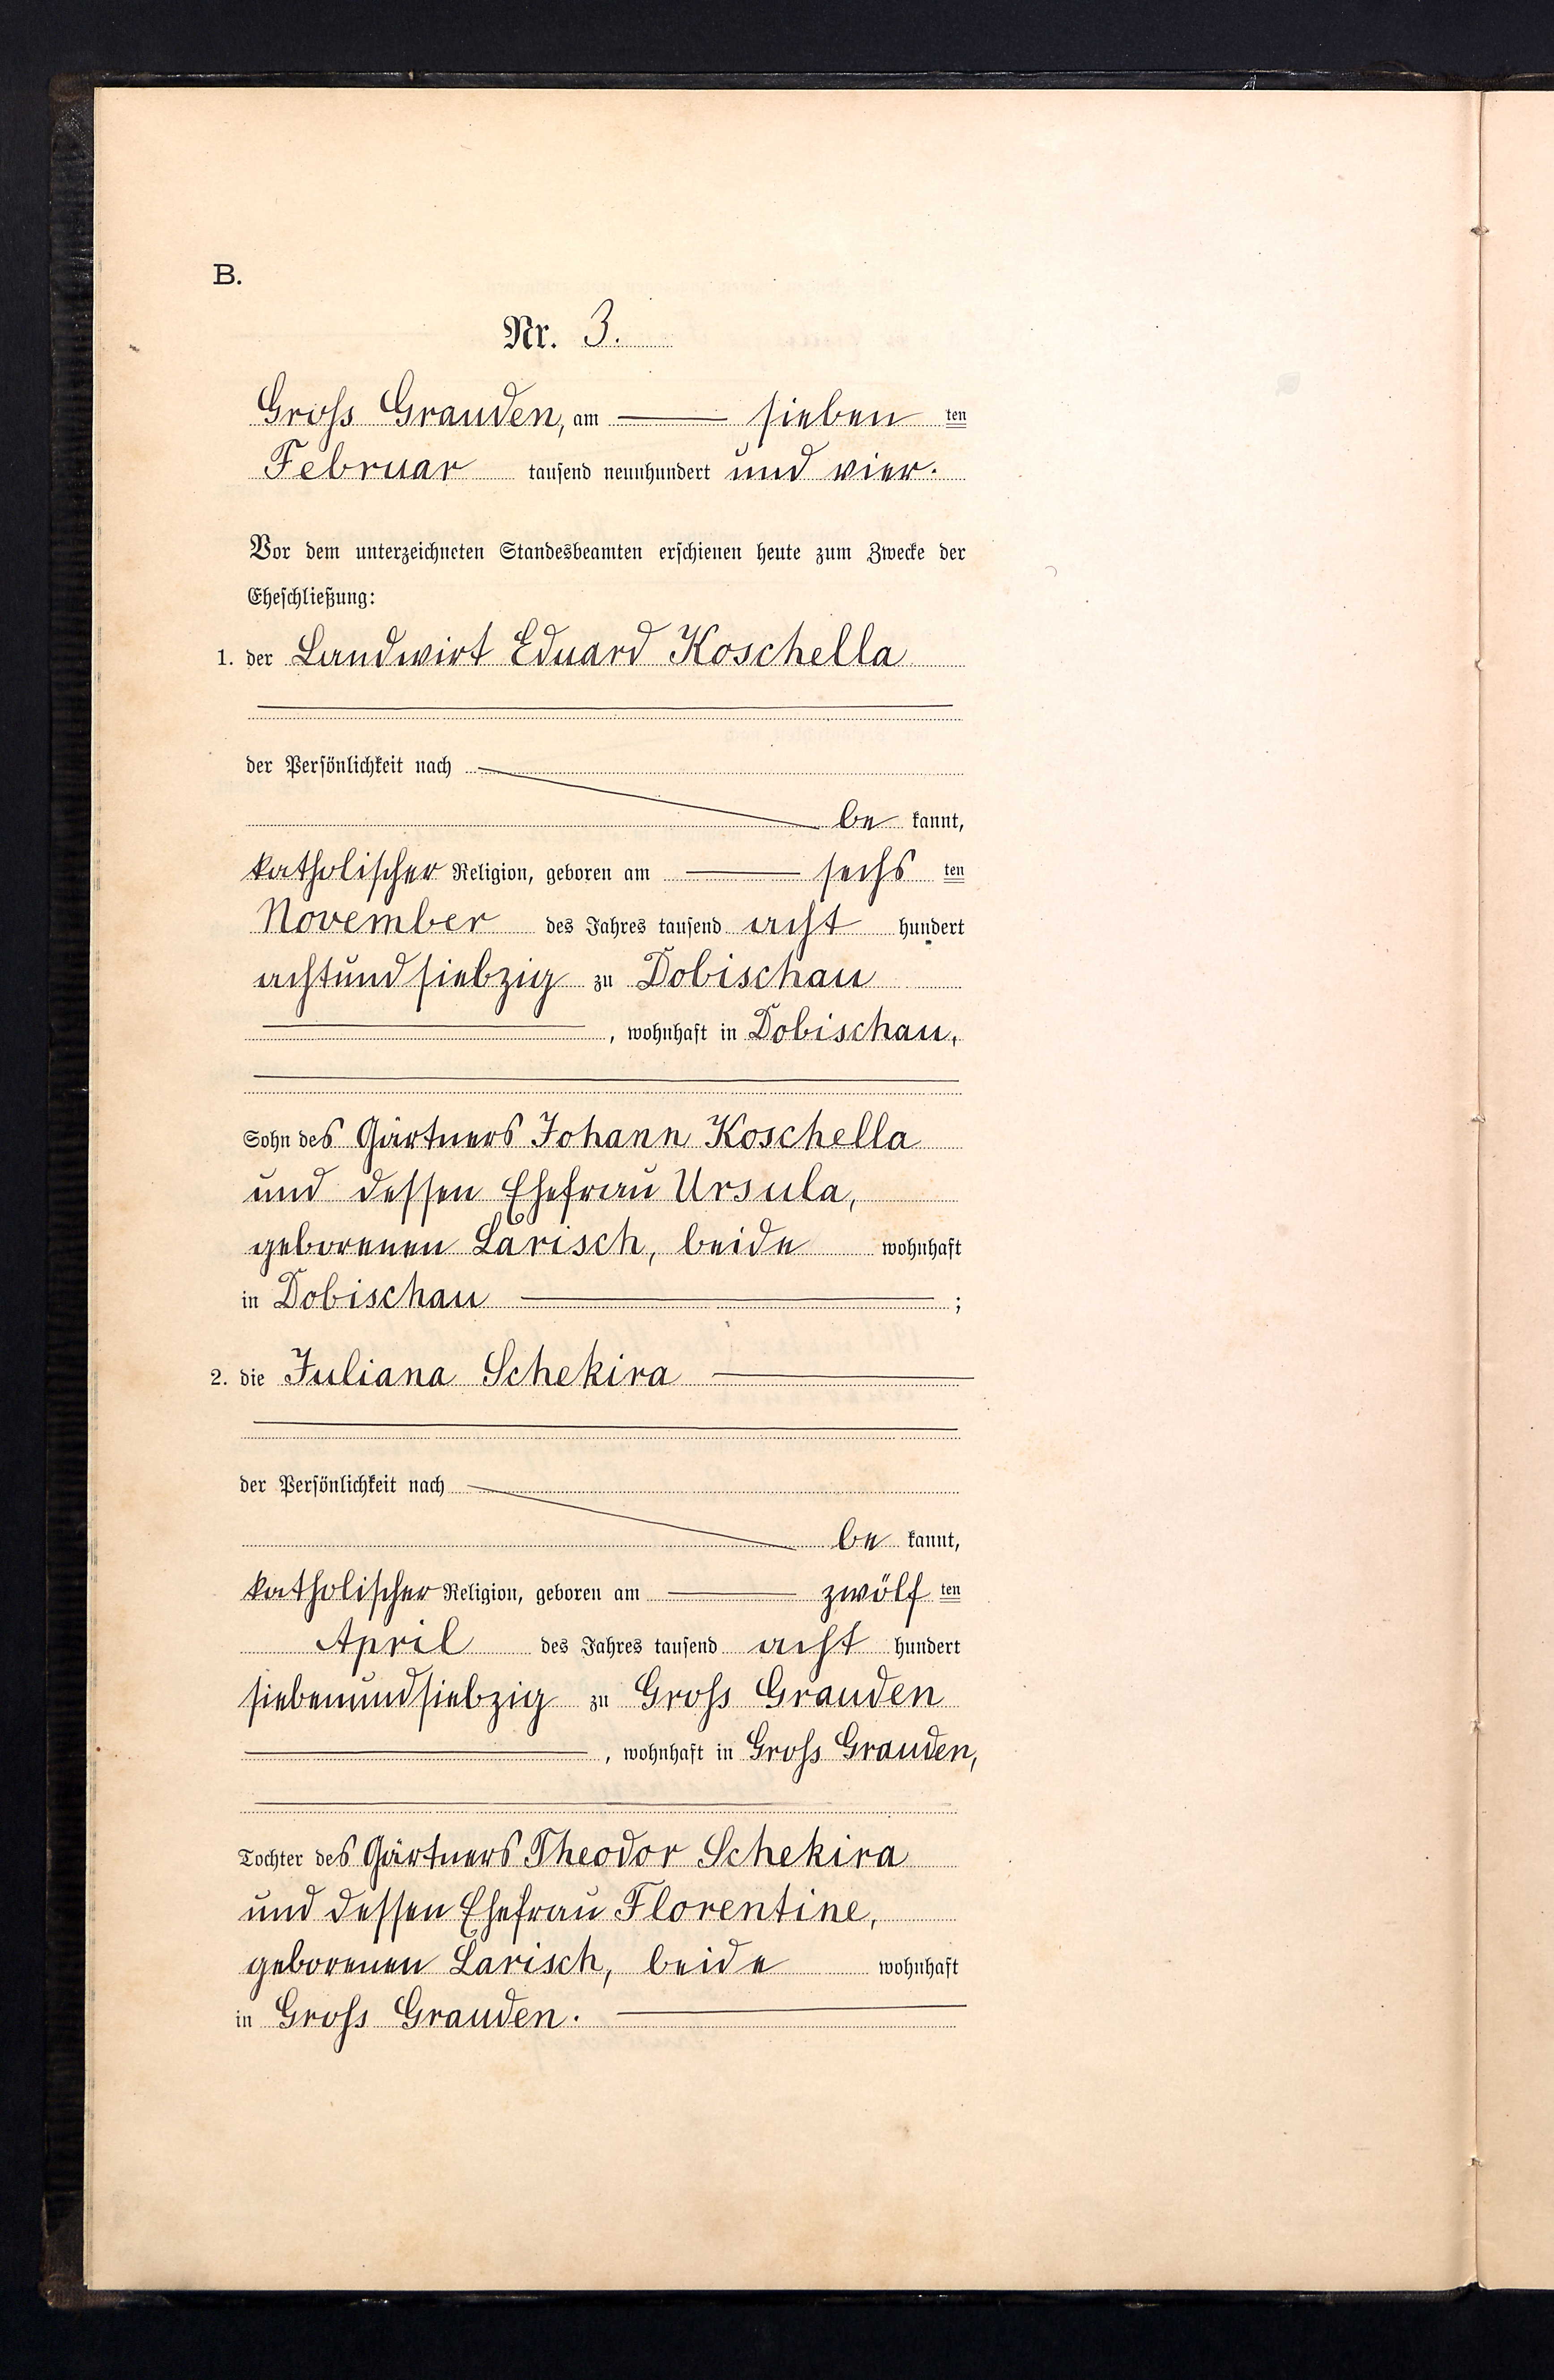 B.
Nr. 3.
Gross Grauden, am sieben ten
Februar tausend neunhundert und vier.
Vor dem unterzeichneten Standesbeamten erschienen heute zum Zwecke der
Eheschließung:
1. der Landwirt Eduard Koschella
der Persönlichkeit nach
be kannt,
katholischer Religion, geboren am sechs ten
November des Jahres tausend acht hundert
achtundsiebzig zu Dobischau
, wohnhaft in Dobischau,
Sohn des Gärtners Johann Koschella
und dessen Ehefrau Ursula,
geborenen Larisch, beide wohnhaft
in Dobischau ;
2. die Juliana Schekira
der Persönlichkeit nach
be kannt,
katholischer Religion, geboren am zwölf ten
April des Jahres tausend acht hundert
siebenundsiebzig zu Gross Grauden
, wohnhaft in Gross Grauden,
Tochter des Gärtners Theodor Schekira
und dessen Ehefrau Florentine,
geborenen Larisch, beide wohnhaft
in Gross Grauden.